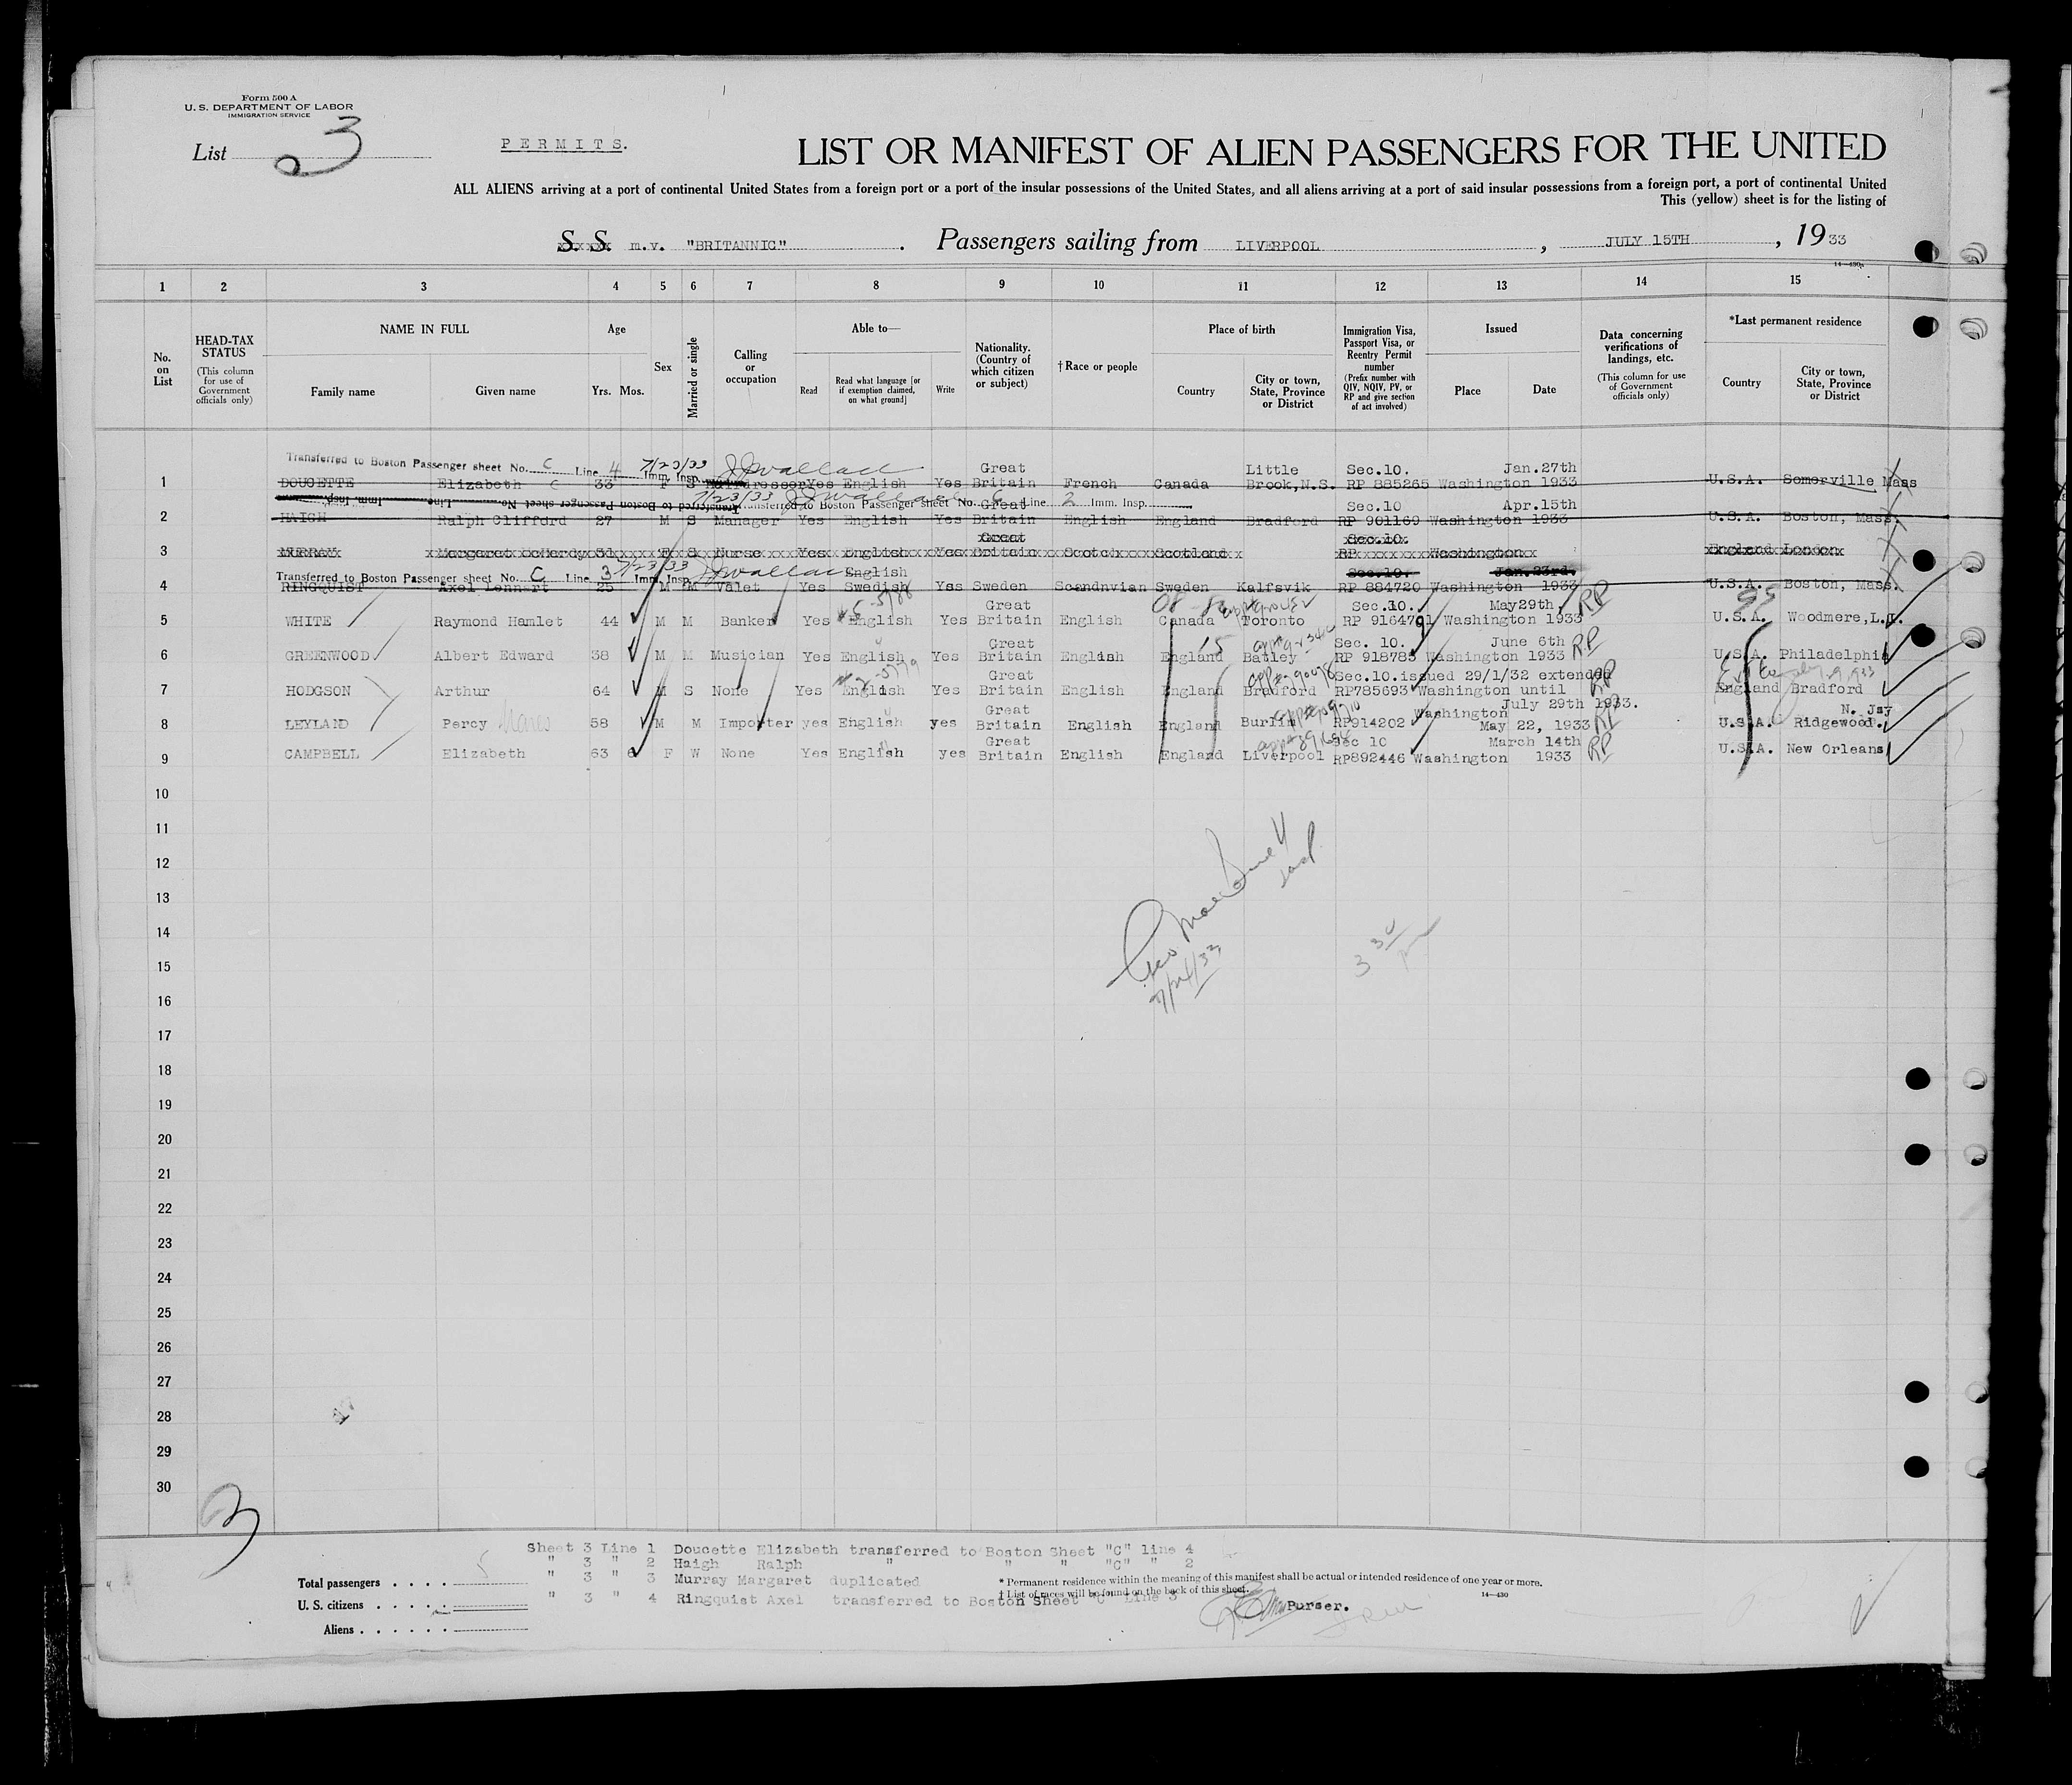 Form 500 A
U. S. DEPARTMENT OF LABOR
IMMIGRATION SERVICE
List 3
PERMITS.
LIST OR MANIFEST OF ALIEN PASSENGERS FOR THE UNITED
ALL ALIENS arriving at a port of continental United States from a foreign port or a port of the insular possessions of the United States, and all aliens arriving at a port of said insular possessions from a foreign port, a port of continental United
This (yellow) sheet is for the listing of
S. S. m.v. "BRITANNIC" . Passengers sailing from LIVERPOOL , JULY 15TH , 1933
14—430a
1 2 3 4 5 6 7 8 9 10 11 12 13 14 15
No. on List
HEAD-TAX STATUS (This column for use of Government officials only)
NAME IN FULL Family name Given name
Age Yrs. Mos.
Sex
Married or single
Calling or occupation
Able to— Read Read what language [or if exemption claimed, on what ground] Write
Nationality. (Country of which citizen or subject)
† Race or people
Place of birth Country City or town, State, Province or District
Immigration Visa, Passport Visa, or Reentry Permit number (Prefix number with QIV, NQIV, PV, or RP and give section of act involved)
Issued Place Date
Data concerning verifications of landings, etc. (This column for use of Government officials only)
*Last permanent residence Country City or town, State, Province or District
Transferred to Boston Passenger sheet No. C Line 4 7/23/33 Imm. Insp. J Wallace Great Little Sec.10. Jan.27th
1 DOUCETTE Elizabeth C 33 F S Hairdresser Yes English Yes Britain French Canada Brook,N.S. RP 885265 Washington 1933 U.S.A. Somerville Mass
Transferred to Boston Passenger sheet No. Line Imm. Insp.
7/23/33 J Wallace Transferred to Boston Passenger sheet No. C Line 2 Imm. Insp. Great Sec.10 Apr.15th
2 HAIGH Ralph Clifford 27 M S Manager Yes English Yes Britain English England Bradford RP 901169 Washington 1933 U.S.A. Boston, Mass.
Great Sec.10.
3 MURRAY Margaret McHardy 31 F S Nurse Yes English Yes Britain Scotch Scotland RP Washington England London
Transferred to Boston Passenger sheet No. C Line 3 7/23/33 Imm. Insp. J Wallace English Sec.10. Jan.23rd.
4 RINGQUIST Axel Lennart 25 M M Valet Yes Swedish Yes Sweden Scandnvian Sweden Kalfsvik RP 884720 Washington 1933 U.S.A. Boston, Mass.
Great Sec.10. May29th RP
5 WHITE Raymond Hamlet 44 M M Banker Yes English Yes Britain English Canada Toronto RP 916479 Washington 1933 U.S.A. Woodmere,L.I.
Great Sec. 10. June 6th RP
6 GREENWOOD Albert Edward 38 M M Musician Yes English Yes Britain English England Batley RP 918783 Washington 1933 U.S.A. Philadelphia
Great Sec.10.issued 29/1/32 extended RP
7 HODGSON Arthur 64 M S None Yes English Yes Britain English England Bradford RP785693 Washington until England Bradford
Great Washington July 29th 1933. N. Jsy
8 LEYLAND Percy 58 M M Importer yes English yes Britain English England Burlin RP914202 May 22, 1933 RP U.S.A. Ridgewood.
Great Sec 10 March 14th RP
9 CAMPBELL Elizabeth 63 6 F W None Yes English yes Britain English England Liverpool RP892446 Washington 1933 U.S.A. New Orleans
10
11
12
13
14
15
16
17
18
19
20
21
22
23
24
25
26
27
28
29
30
7/24/33
3 30 pm
3
Sheet 3 Line 1 Doucette Elizabeth transferred to Boston Sheet "C" line 4
" 3 " 2 Haigh Ralph " " " "C" " 2
" 3 " 3 Murray Margaret duplicated
" 3 " 4 Ringquist Axel transferred to Boston Sheet "C" Line 3
Total passengers . . . . 5
U. S. citizens . . . . .
Aliens . . . . . .
* Permanent residence within the meaning of this manifest shall be actual or intended residence of one year or more.
† List of races will be found on the back of this sheet.
14—430
Purser.